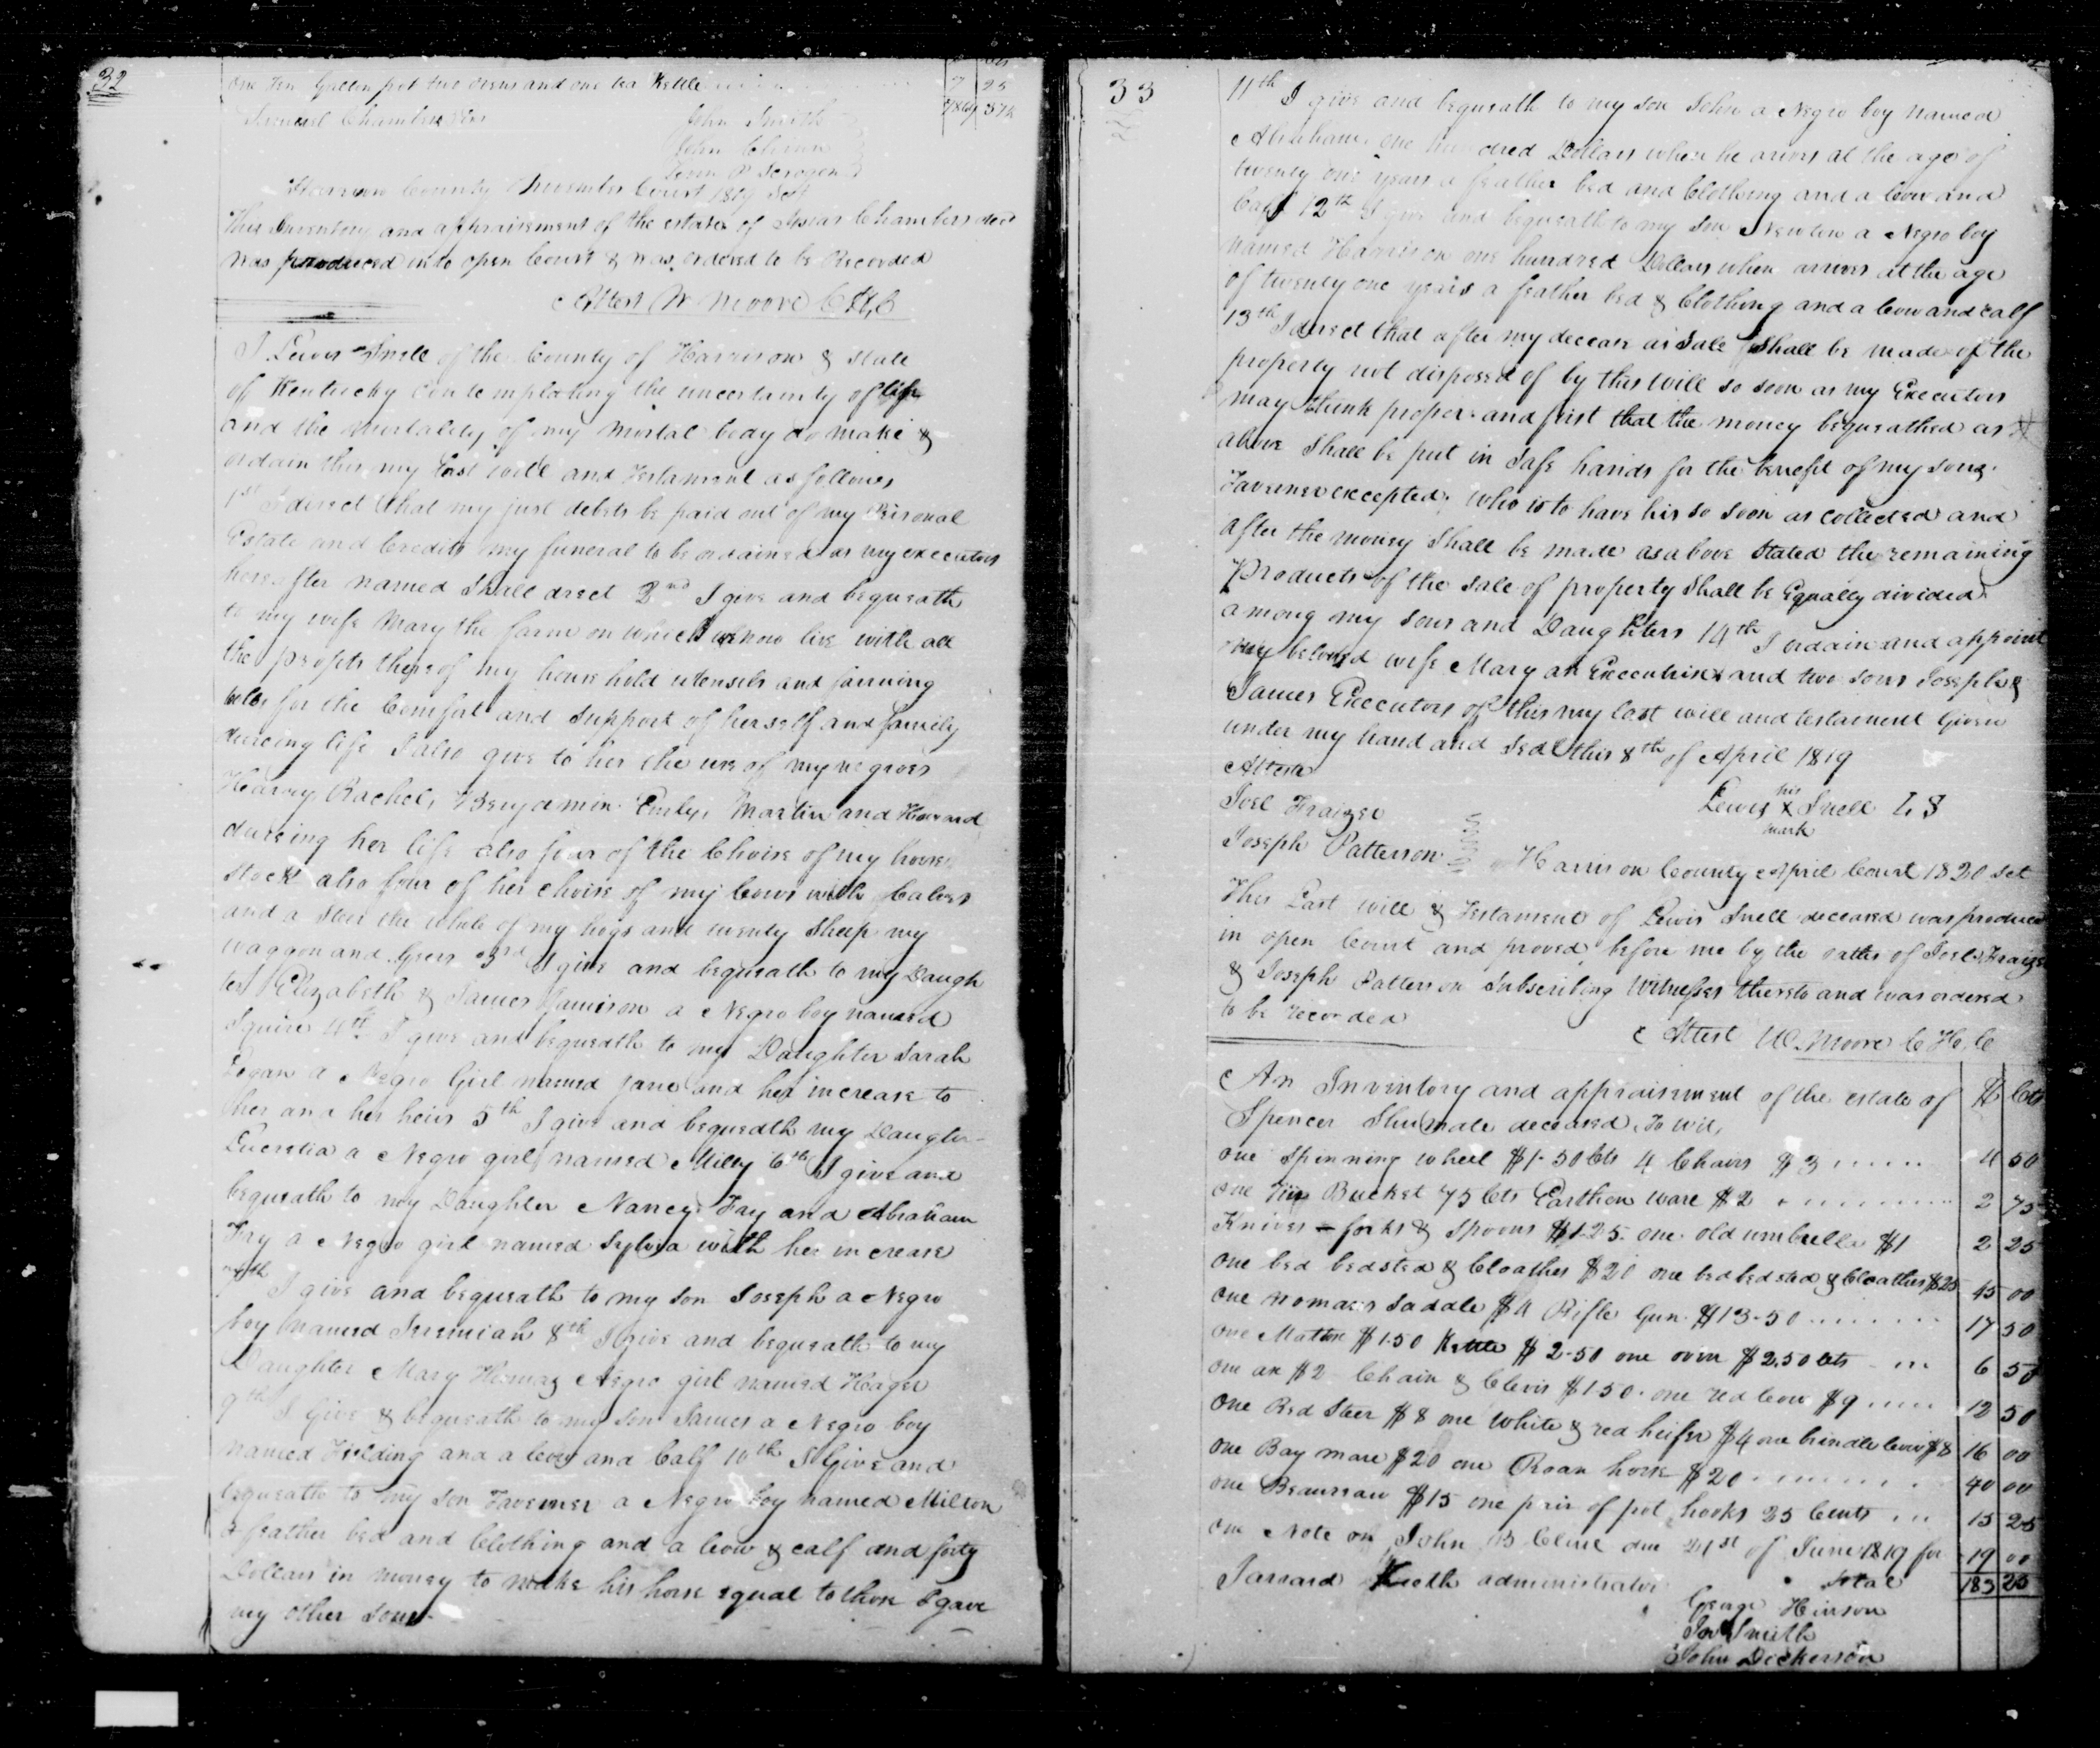 32
one Ten Gallon pot two ovens and one tea Kettle 7 25
Samuel Chambers John Smith
John
Harrison County November Court 1819 Sct
This Inventory and appraisement of the estate of Chambers decd
was produced into open Court & was ordered to be Recorded
Attest W Moore C H C
I Lewis Snell of the County of Harrison & state
of Kentucky contemplating the uncertainty of life
and the mortality of my mortal body do make &
ordain this my last will and Testament as follows
1st I direct that my just debts be paid out of my Personal
Estate and Credits my funeral to be ordained as my executors
hereafter named Shall direct 2nd I give and bequeath
to my wife Mary the farm on which we now live with all
the profits thereof my household utensils and farming
tools for the Comfort and Support of herself and family
dureing life I also give to her the use of my negroes
Harvey, Rachel, Benjamin Emily, Martin and Howard
dureing her life also four of the Choise of my horse
stock also four of her choise of my Cows with Calves
and a Steer the whole of my hogs and twenty Sheep my
waggon and Geers 3rd I give and bequeath to my Daugh
ter Elizabeth & James Jamison a Negro boy named
Squire 4th I give and bequeath to my Daughter Sarah
Logan a Negro Girl named Jane and her increase to
her and her heirs 5th I give and bequeath my Daughter
Lucretia a Negro girl named Milly 6th I give and
bequeath to my Daughter Nancy Fry and Abraham
Fry a Negro girl named Sylvia with her increase
7th I give and bequeath to my son Joseph a Negro
boy named Jeremiah 8th I give and bequeath to my
Daughter Mary Negro girl named Hager
9th I Give & bequeath to my son James a Negro boy
named Fielding and a Cow and Calf 10th I Give and
bequeath to my son Taverner a Negro boy named Milton
a feather bed and Clothing and a Cow & calf and forty
Dollars in money to make his horse equal to those I gave
my other sons
33
11th I give and bequeath to my son John a Negro boy named
Abraham one hundred Dollars when he arives at the age of
twenty one years a feather bed and Clothing and a Cow and
Calf 12th I give and bequeath to my son Newton a Negro boy
named Harrison one hundred Dollars when arives at the age
of twenty one years a feather bed & Clothing and a Cow and calf
13th I direct that after my decease a Sale Shall be made of the
property not disposed of by this will so soon as my Executors
may think proper and first that the money bequeathed as
above Shall be put in safe hands for the benefit of my sons
Taverner excepted, who is to have his so soon as collected and
after the money Shall be made as above stated the remaining
Products of the sale of property Shall be Equally divided
among my sons and Daughters 14th I ordain and appoint
my beloved wife Mary an Executrix and two sons Joseph &
James Executors of this my last will and testament Given
under my hand and Seal this 8th of April 1819
Attest
his
Joel Fraizer Lewis X Snell L S
mark
Joseph Patterson
Harrison County April Court 1820 Sct
This Last will & Testament of Lewis Snell deceased was produced
in open Court and proved before me by the oaths of Joel Fraizer
& Joseph Patterson Subscribing Witnesses thereto and was ordered
to be recorded
Attest W. Moore C H, C
An Inventory and appraisement of the estate of $ Cts
Spencer Shumate deceased, To wit,
one Spinning wheel $1-50 Cts 4 Chairs $3 4 50
one Bucket 75 Cts Earthen ware $2 2 75
Knives - forks & spoons $1-25 one old umbrella $1 2 25
one bed bedsted & Cloathes $20 one bed bedsted & Cloathes $25 45 00
one womans saddle $4 Rifle Gun $13-50 17 50
one $1.50 Kettle $2-50 one oven $2.50 cts 6 50
one ax $2 Chain & Clevis $1-50 one red Cow $9 12 50
one Red Steer $8 one White & red heifer $4 one brindle Cow $8 16 00
one Bay mare $20 one Roan horse $20 40 00
one Beaureau $15 one pair of pot hooks 25 Cents 15 25
one Note on John B Cline due 21st of June 1819 for 19 00
administrator Total 183 25
George Hinson
Smith
John Dickerson